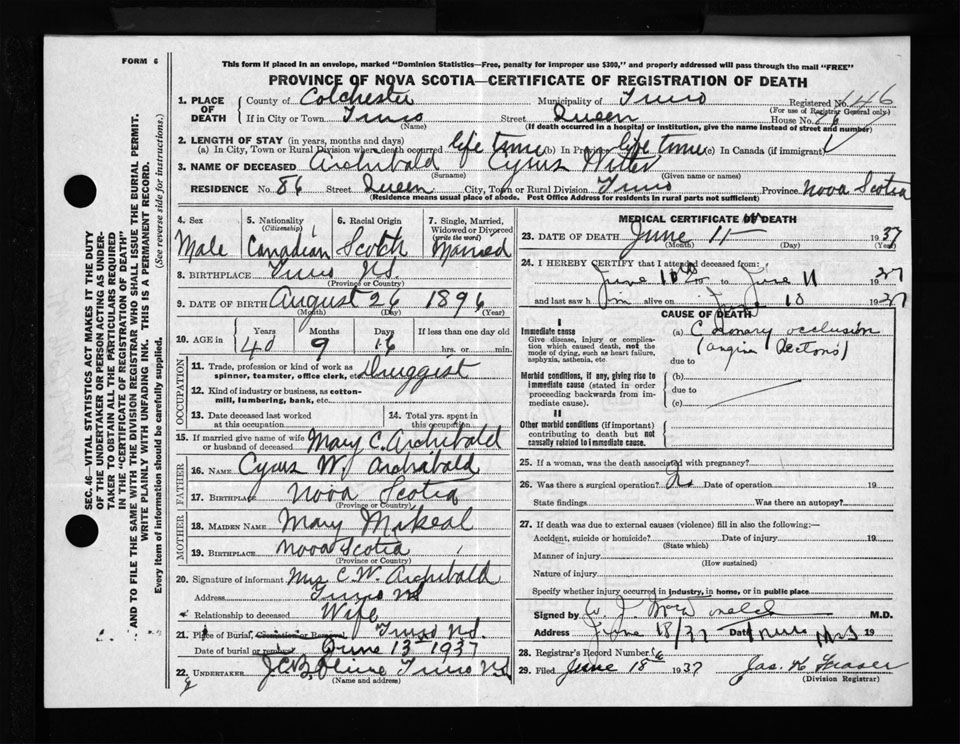 FORM 6
This form if placed in an envelope, marked "Dominion Statistics—Free, penalty for improper use $300," and properly addressed will pass through the mail "FREE"
PROVINCE OF NOVA SCOTIA—CERTIFICATE OF REGISTRATION OF DEATH
1. PLACE OF DEATH County of Colchester Municipality of Truro Registered No. 146
(For use of Registrar General only)
If in City or Town Truro Street Queen House No. 86
(Name) (If death occurred in a hospital or institution, give the name instead of street and number)
2. LENGTH OF STAY (in years, months and days)
(a) In City, Town or Rural Division where death occurred life time (b) In Province life time (c) In Canada (if immigrant)
3. NAME OF DECEASED Archibald Cyrus
(Surname) (Given name or names)
RESIDENCE No. 86 Street Queen City, Town or Rural Division Truro Province Nova Scotia
(Residence means usual place of abode. Post Office Address for residents in rural parts not sufficient)
4. Sex Male
5. Nationality (Citizenship) Canadian
6. Racial Origin Scotch
7. Single, Married, Widowed or Divorced (write the word) Married
8. BIRTHPLACE Truro N.S.
(Province or Country)
9. DATE OF BIRTH August 26 1896
(Month) (Day) (Year)
10. AGE in Years Months Days If less than one day old
40 9 16 hrs. or min.
OCCUPATION
11. Trade, profession or kind of work as spinner, teamster, office clerk, etc. Druggist
12. Kind of industry or business, as cotton-mill, lumbering, bank, etc.
13. Date deceased last worked at this occupation
14. Total yrs. spent in this occupation
15. If married give name of wife or husband of deceased Mary C. Archibald
FATHER
16. NAME Cyrus W. Archibald
17. BIRTHPLACE Nova Scotia
(Province or Country)
MOTHER
18. MAIDEN NAME Mary
19. BIRTHPLACE Nova Scotia
(Province or Country)
20. Signature of informant Mrs C. W. Archibald
Address Truro NS
Relationship to deceased Wife
21. Place of Burial, Cremation or Removal Truro N.S.
Date of burial or removal June 13 1937
22. UNDERTAKER Truro NS
(Name and address)
MEDICAL CERTIFICATE OF DEATH
23. DATE OF DEATH June 11 1937
(Month) (Day) (Year)
24. I HEREBY CERTIFY that I attended deceased from:
June 10th to June 11 1937
and last saw him alive on June 10 1937
CAUSE OF DEATH
I
Immediate cause
Give disease, injury or complication which caused death, not the mode of dying, such as heart failure, asphyxia, asthenia, etc.
(a) Coronary occlusion
(Angina Pectoris)
due to
Morbid conditions, if any, giving rise to immediate cause (stated in order proceeding backwards from immediate cause).
(b)
due to
(c)
II
Other morbid conditions (if important) contributing to death but not causally related to immediate cause.
25. If a woman, was the death associated with pregnancy?
26. Was there a surgical operation? No Date of operation 19
State findings Was there an autopsy?
27. If death was due to external causes (violence) fill in also the following:—
Accident, suicide or homicide? Date of injury 19
(State which)
Manner of injury
(How sustained)
Nature of injury
Specify whether injury occurred in industry, in home, or in public place
Signed by M.D.
Address June 18/37 Date Truro N.S 19
28. Registrar's Record Number
29. Filed June 18 1937 Jas. H Fraser
(Division Registrar)
SEC. 46—VITAL STATISTICS ACT MAKES IT THE DUTY
OF THE UNDERTAKER OR PERSON ACTING AS UNDERTAKER TO OBTAIN ALL THE PARTICULARS REQUIRED
IN THE "CERTIFICATE OF REGISTRATION OF DEATH"
AND TO FILE THE SAME WITH THE DIVISION REGISTRAR WHO SHALL ISSUE THE BURIAL PERMIT.
WRITE PLAINLY WITH UNFADING INK. THIS IS A PERMANENT RECORD.
Every item of information should be carefully supplied. (See reverse side for instructions.)